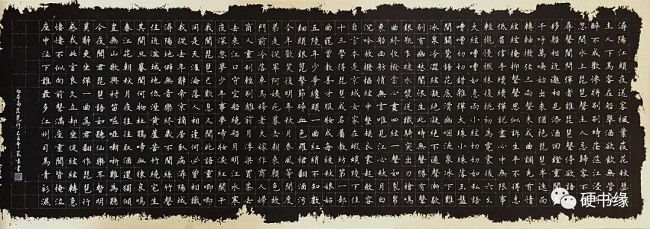 潯陽江頭夜送客楓葉荻花秋瑟瑟
主人下馬客在船舉酒欲飲無管絃
醉不成歡慘將別別時茫茫江浸月
忽聞水上琵琶聲主人忘歸客不發
尋聲闇問彈者誰琵琶聲停欲語遲
移船相近邀相見添酒回燈重開宴
千呼萬喚始出來猶抱琵琶半遮面
轉軸撥絃三兩聲未成曲調先有情
絃絃掩抑聲聲思似訴生平不得志
低眉信手續續彈說盡心中無限事
輕攏慢撚抹復挑初為霓裳後六幺
大絃嘈嘈如急雨小絃切切如私語
嘈嘈切切錯雜彈大珠小珠落玉盤
間關鶯語花底滑幽咽泉流冰下難
冰泉冷澀絃凝絕凝絕不通聲漸歇
別有幽愁闇恨生此時無聲勝有聲
銀瓶乍破水漿迸鐵騎突出刀槍鳴
曲終收撥當心畫四絃一聲如裂帛
東船西舫悄無言唯見江心秋月白
沉吟放撥插絃中整頓衣裳起斂容
自言本是京城女家在蝦蟆陵下住
十三學得琵琶成名屬教坊第一部
曲罷曾教善才服妝成每被秋娘妒
五陵年少爭纏頭一曲紅綃不知數
鈿頭銀篦擊節碎血色羅裙翻酒污
今年歡笑復明年秋月春風等閒度
弟走從軍阿姨死暮去朝來顏色故
門前冷落車馬稀老大嫁作商人婦
商人重利輕別離前月浮梁買茶去
去來江口守空船繞船月明江水寒
夜深忽夢少年事夢啼妝淚紅闌干
我聞琵琶已歎息又聞此語重唧唧
同是天涯淪落人相逢何必曾相識
我從去年辭帝京謫居臥病潯陽城
潯陽地僻無音樂終歲不聞絲竹聲
住近湓江地低濕黃蘆苦竹繞宅生
其間旦暮聞何物杜鵑啼血猿哀鳴
春江花朝秋月夜往往取酒還獨傾
豈無山歌與村笛嘔啞嘲哳難為聽
今夜聞君琵琶語如聽仙樂耳暫明
莫辭更坐彈一曲為君翻作琵琶行
感我此言良久立卻坐促絃絃轉急
淒淒不似向前聲滿座重聞皆掩泣
座中泣下誰最多江州司馬青衫濕
白居易琵琶行
硬书缘